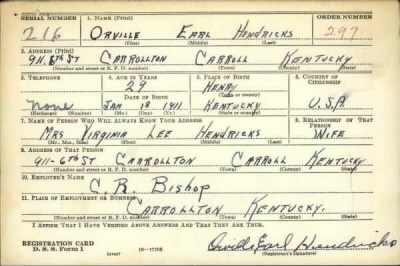 SERIAL NUMBER 1. NAME (Print) ORDER NUMBER
216 ORVILLE EARL HENDRICKS 297
(First) (Middle) (Last)
3. ADDRESS (Print)
911-6th ST CARROLLTON CARROLL KENTUCKY
(Number and street or R. F. D. number) (Town) (County) (State)
3. TELEPHONE 4. AGE IN YEARS 5. PLACE OF BIRTH 6. COUNTRY OF CITIZENSHIP
29 HENRY
DATE OF BIRTH (Town or county)
None JAN 18 1911 KENTUCKY U.S.A.
(Exchange) (Number) (Mo.) (Day) (Yr.) (State or country)
7. NAME OF PERSON WHO WILL ALWAYS KNOW YOUR ADDRESS 8. RELATIONSHIP OF THAT PERSON
MRS VIRGINIA LEE HENDRICKS WIFE
(Mr., Mrs., Miss) (First) (Middle) (Last)
9. ADDRESS OF THAT PERSON
911-6TH ST CARROLLTON CARROLL KENTUCKY
(Number and street or R. F. D. number) (Town) (County) (State)
10. EMPLOYER'S NAME
C. R. BISHOP
11. PLACE OF EMPLOYMENT OR BUSINESS
CARROLLTON KENTUCKY.
(Number and street or R. F. D. number) (Town) (County) (State)
I AFFIRM THAT I HAVE VERIFIED ABOVE ANSWERS AND THAT THEY ARE TRUE.
REGISTRATION CARD
D. S. S. Form 1 (over) Orville Earl Hendricks
(Registrant's signature)